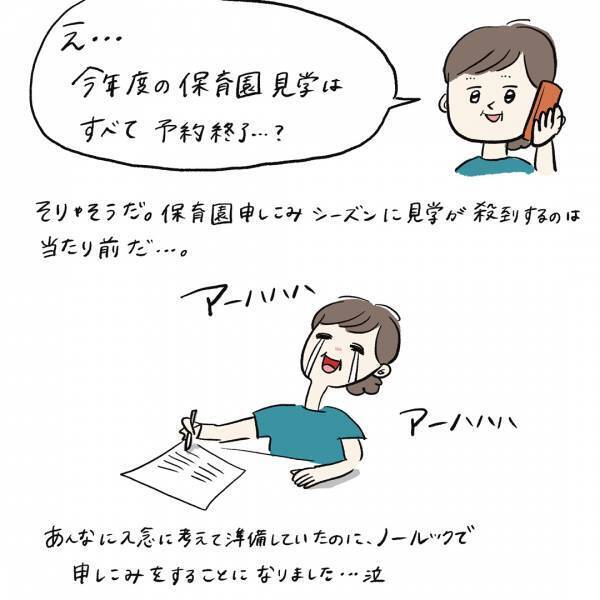 え…
今年度の保育園見学は
すべて 予約終了…?
そりゃそうだ。保育園申しこみ シーズンに見学が 殺到するのは
当たり前だ…。
アーハハハ
アーハハハ
あんなに入念に考えて準備していたのに、ノールックで
申しこみをすることになりました…泣